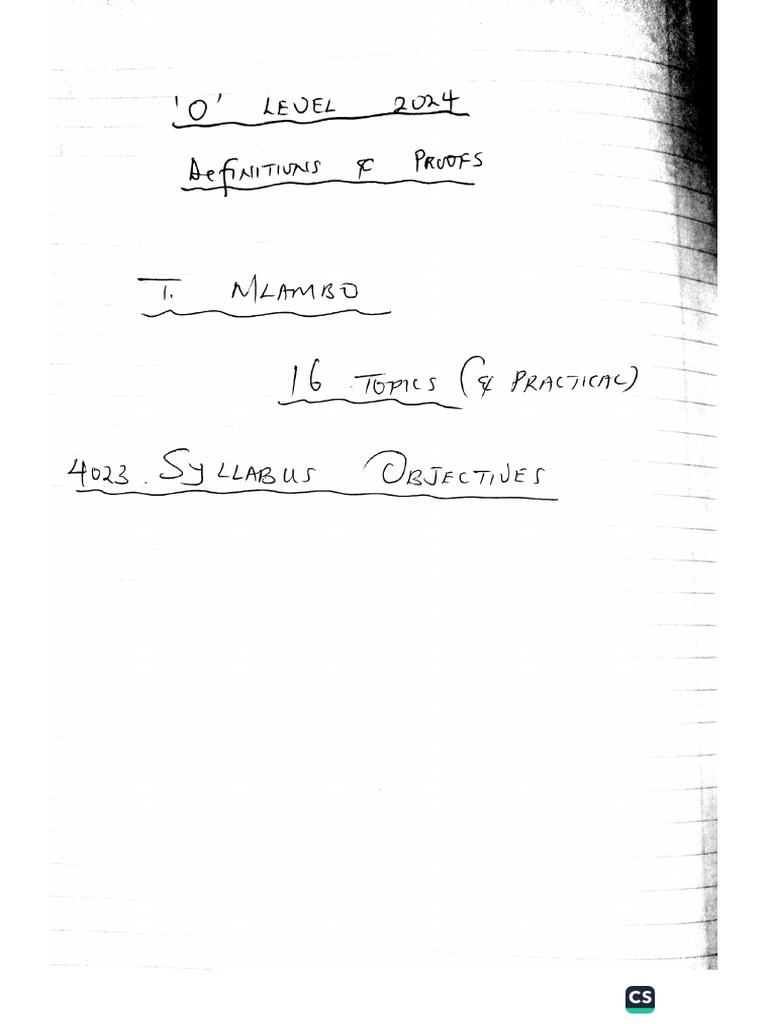 'O' LEVEL 2024
DefINITIONS & PROOFS
T. MLAMBO
16 TOPICS (& PRACTICAL)
4023. SYLLABUS OBJECTIVES
CS